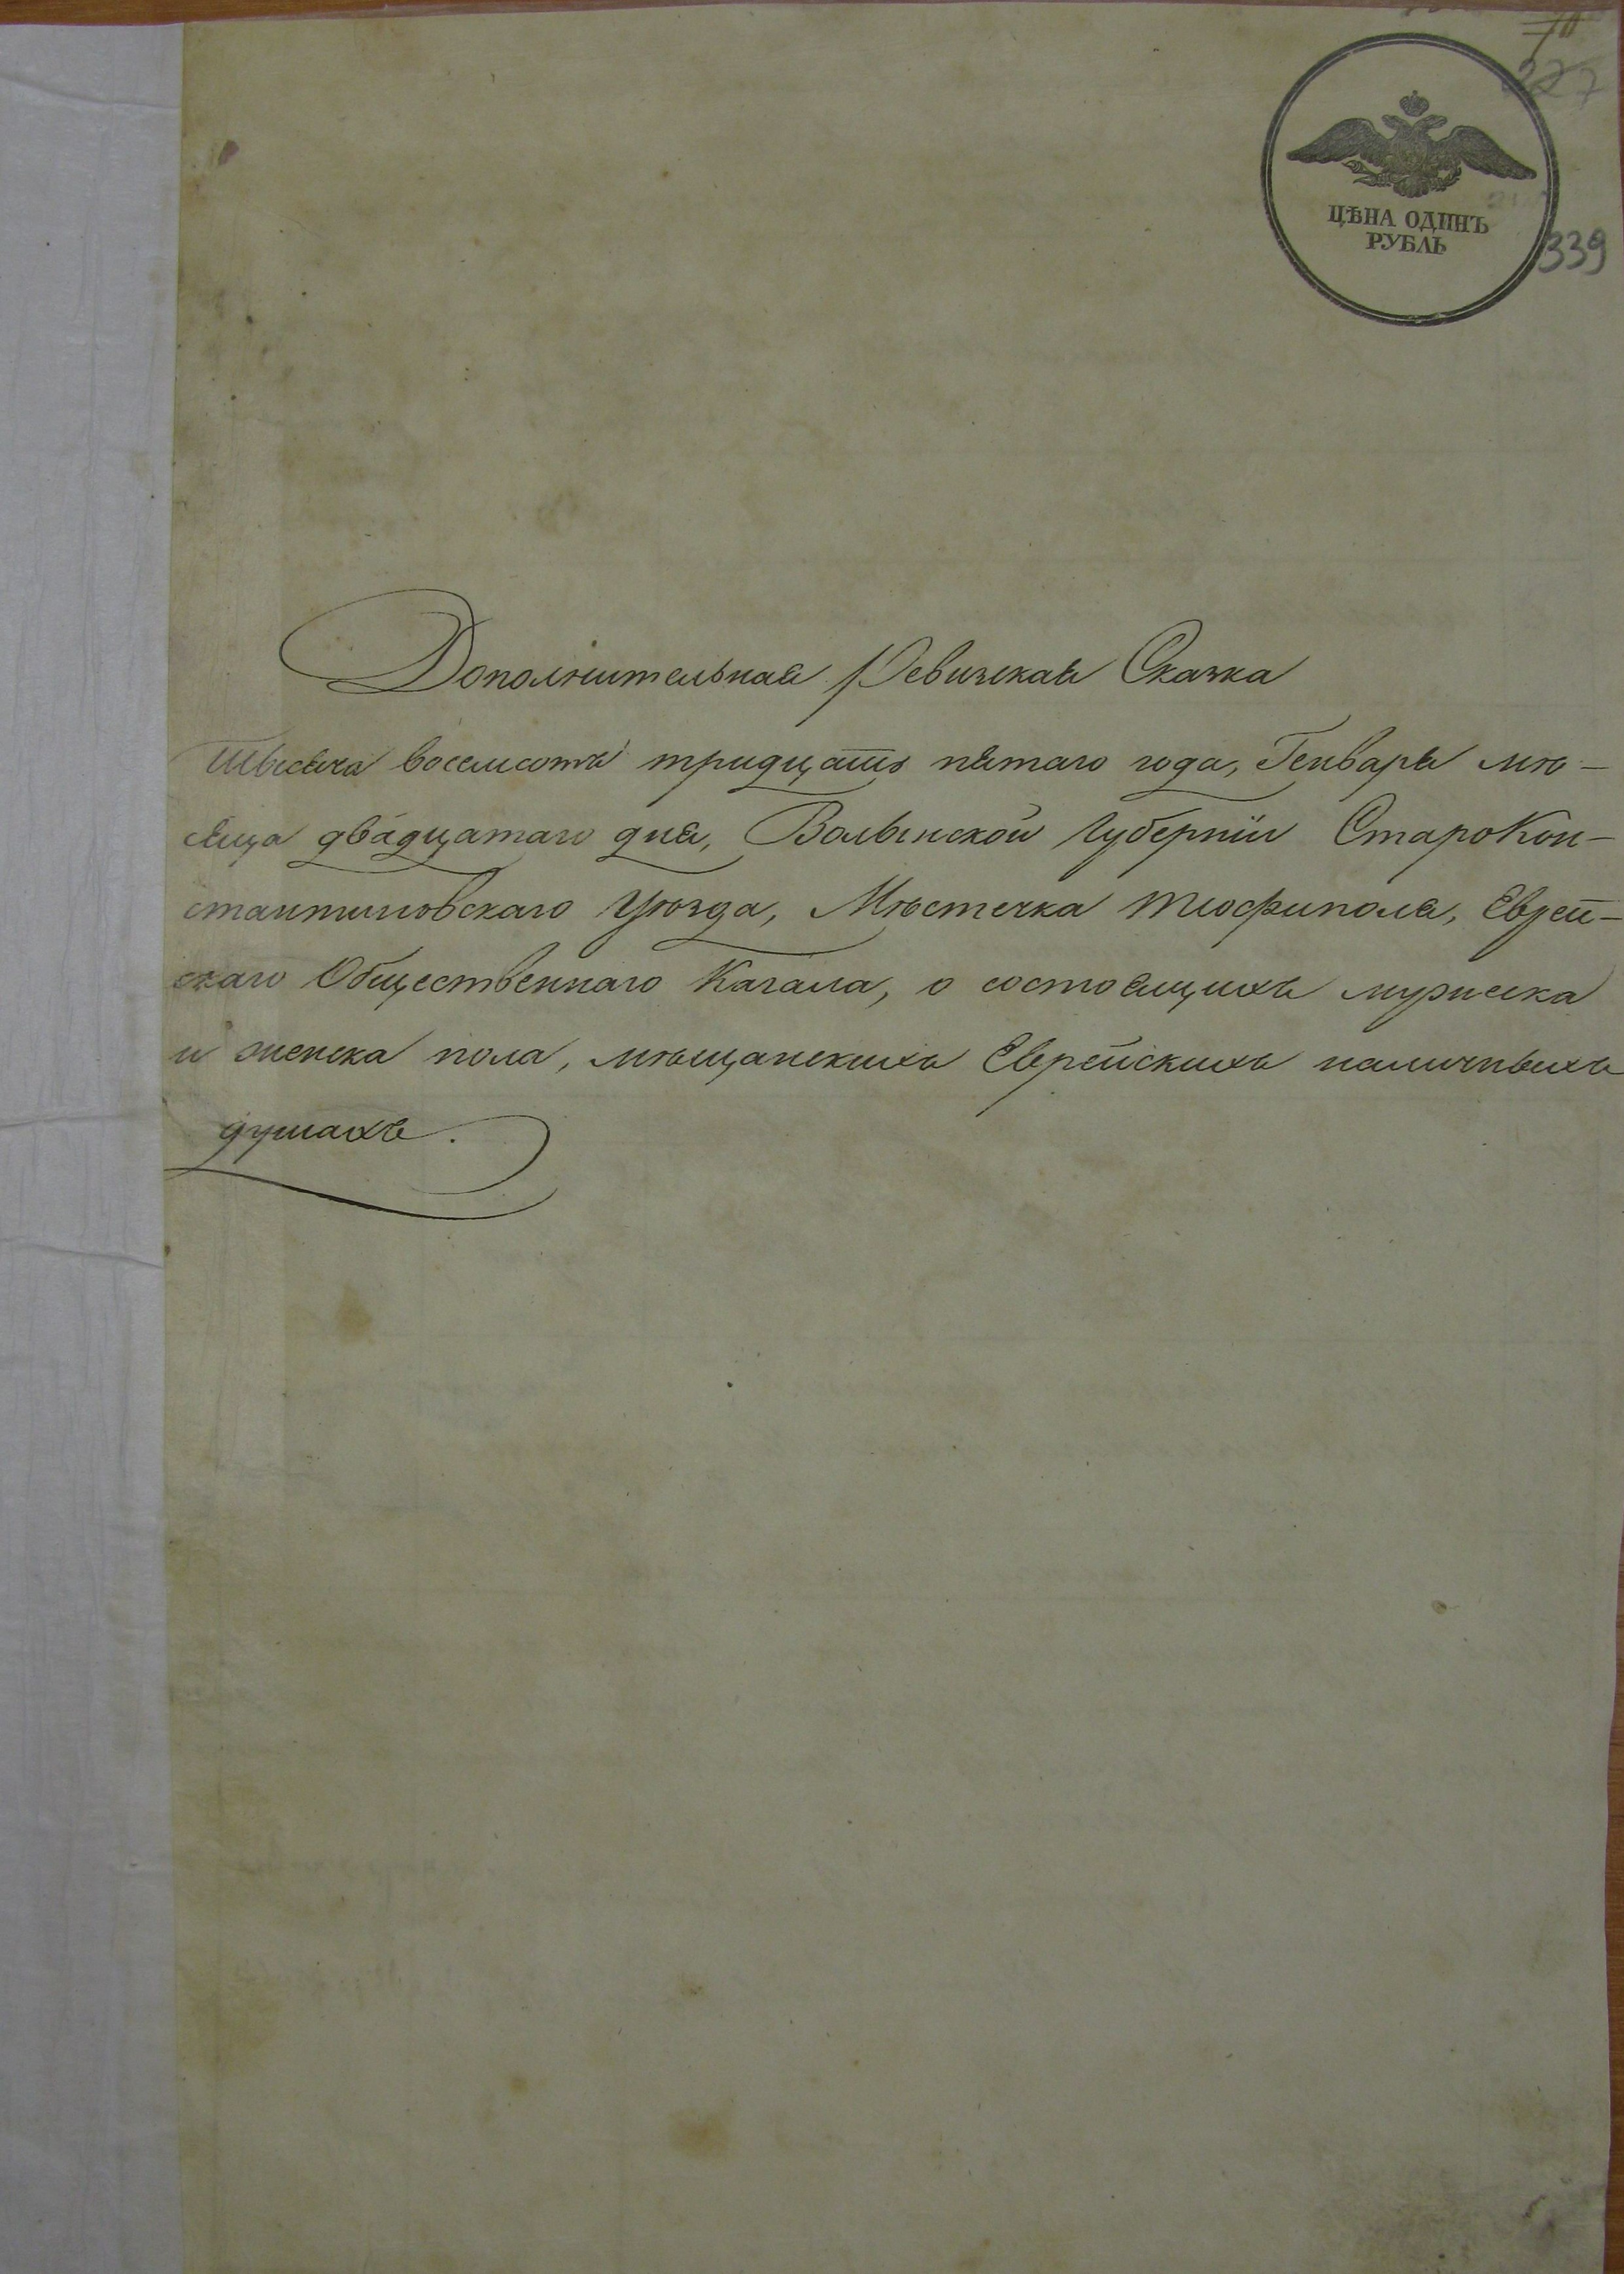 227
ЦѢНА ОДИНЪ
РУБЛЬ
339
Дополнительная Ревизская Сказка
Тысяча восемсотъ тридцать пятаго года, Генваря мѣ-
сяца двадцатаго дня, Волынской Губерніи СтароКон-
стантиновскаго Уѣзда, Мѣстечка Тіофиполя, Еврей-
скаго Общественнаго Кагала, о состоящихъ мужеска
и женска пола, мѣщанскихъ Еврейскихъ наличныхъ
душахъ.